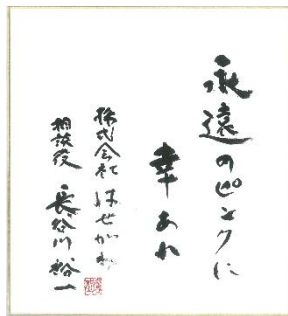 永遠のピンクに
幸あれ
株式会社 はせがわ
相談役 長谷川裕一